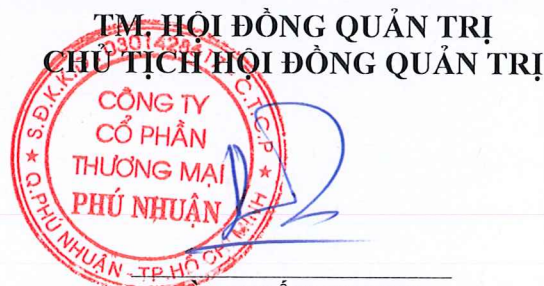 TM. HỘI ĐỒNG QUẢN TRỊ
CHỦ TỊCH HỘI ĐỒNG QUẢN TRỊ
CÔNG TY
CỔ PHẦN
THƯƠNG MẠI
PHÚ NHUẬN
Q.PHÚ NHUẬN - TP.HỒ CHÍ MINH